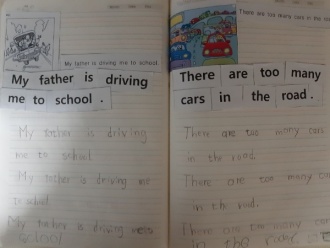 My father is driving me to school.
My father is driving
me to school .
My father is driving
me to school.
My father is driving me
to school.
My father is driving me to
school
There are too many cars in the road.
There are too many
cars in the road .
There are too many cars
in the road.
There are too many cars
in the road.
There are too many cars
in the road.